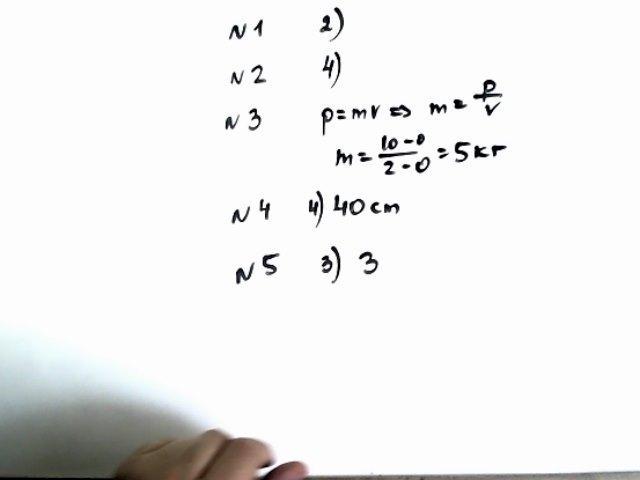 N1 2)
N2 4)
N3 p=mv => m=p/v
m=10-0/2-0=5кг
N4 4) 40 см
N5 3) 3